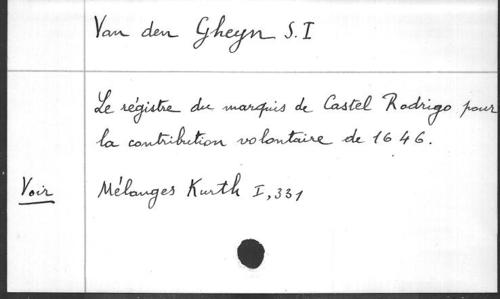 Van den Gheyn S. I
Le régistre du marquis de Castel Rodrigo pour
la contribution volontaire de 1646.
Voir Mélanges Kurth I, 331